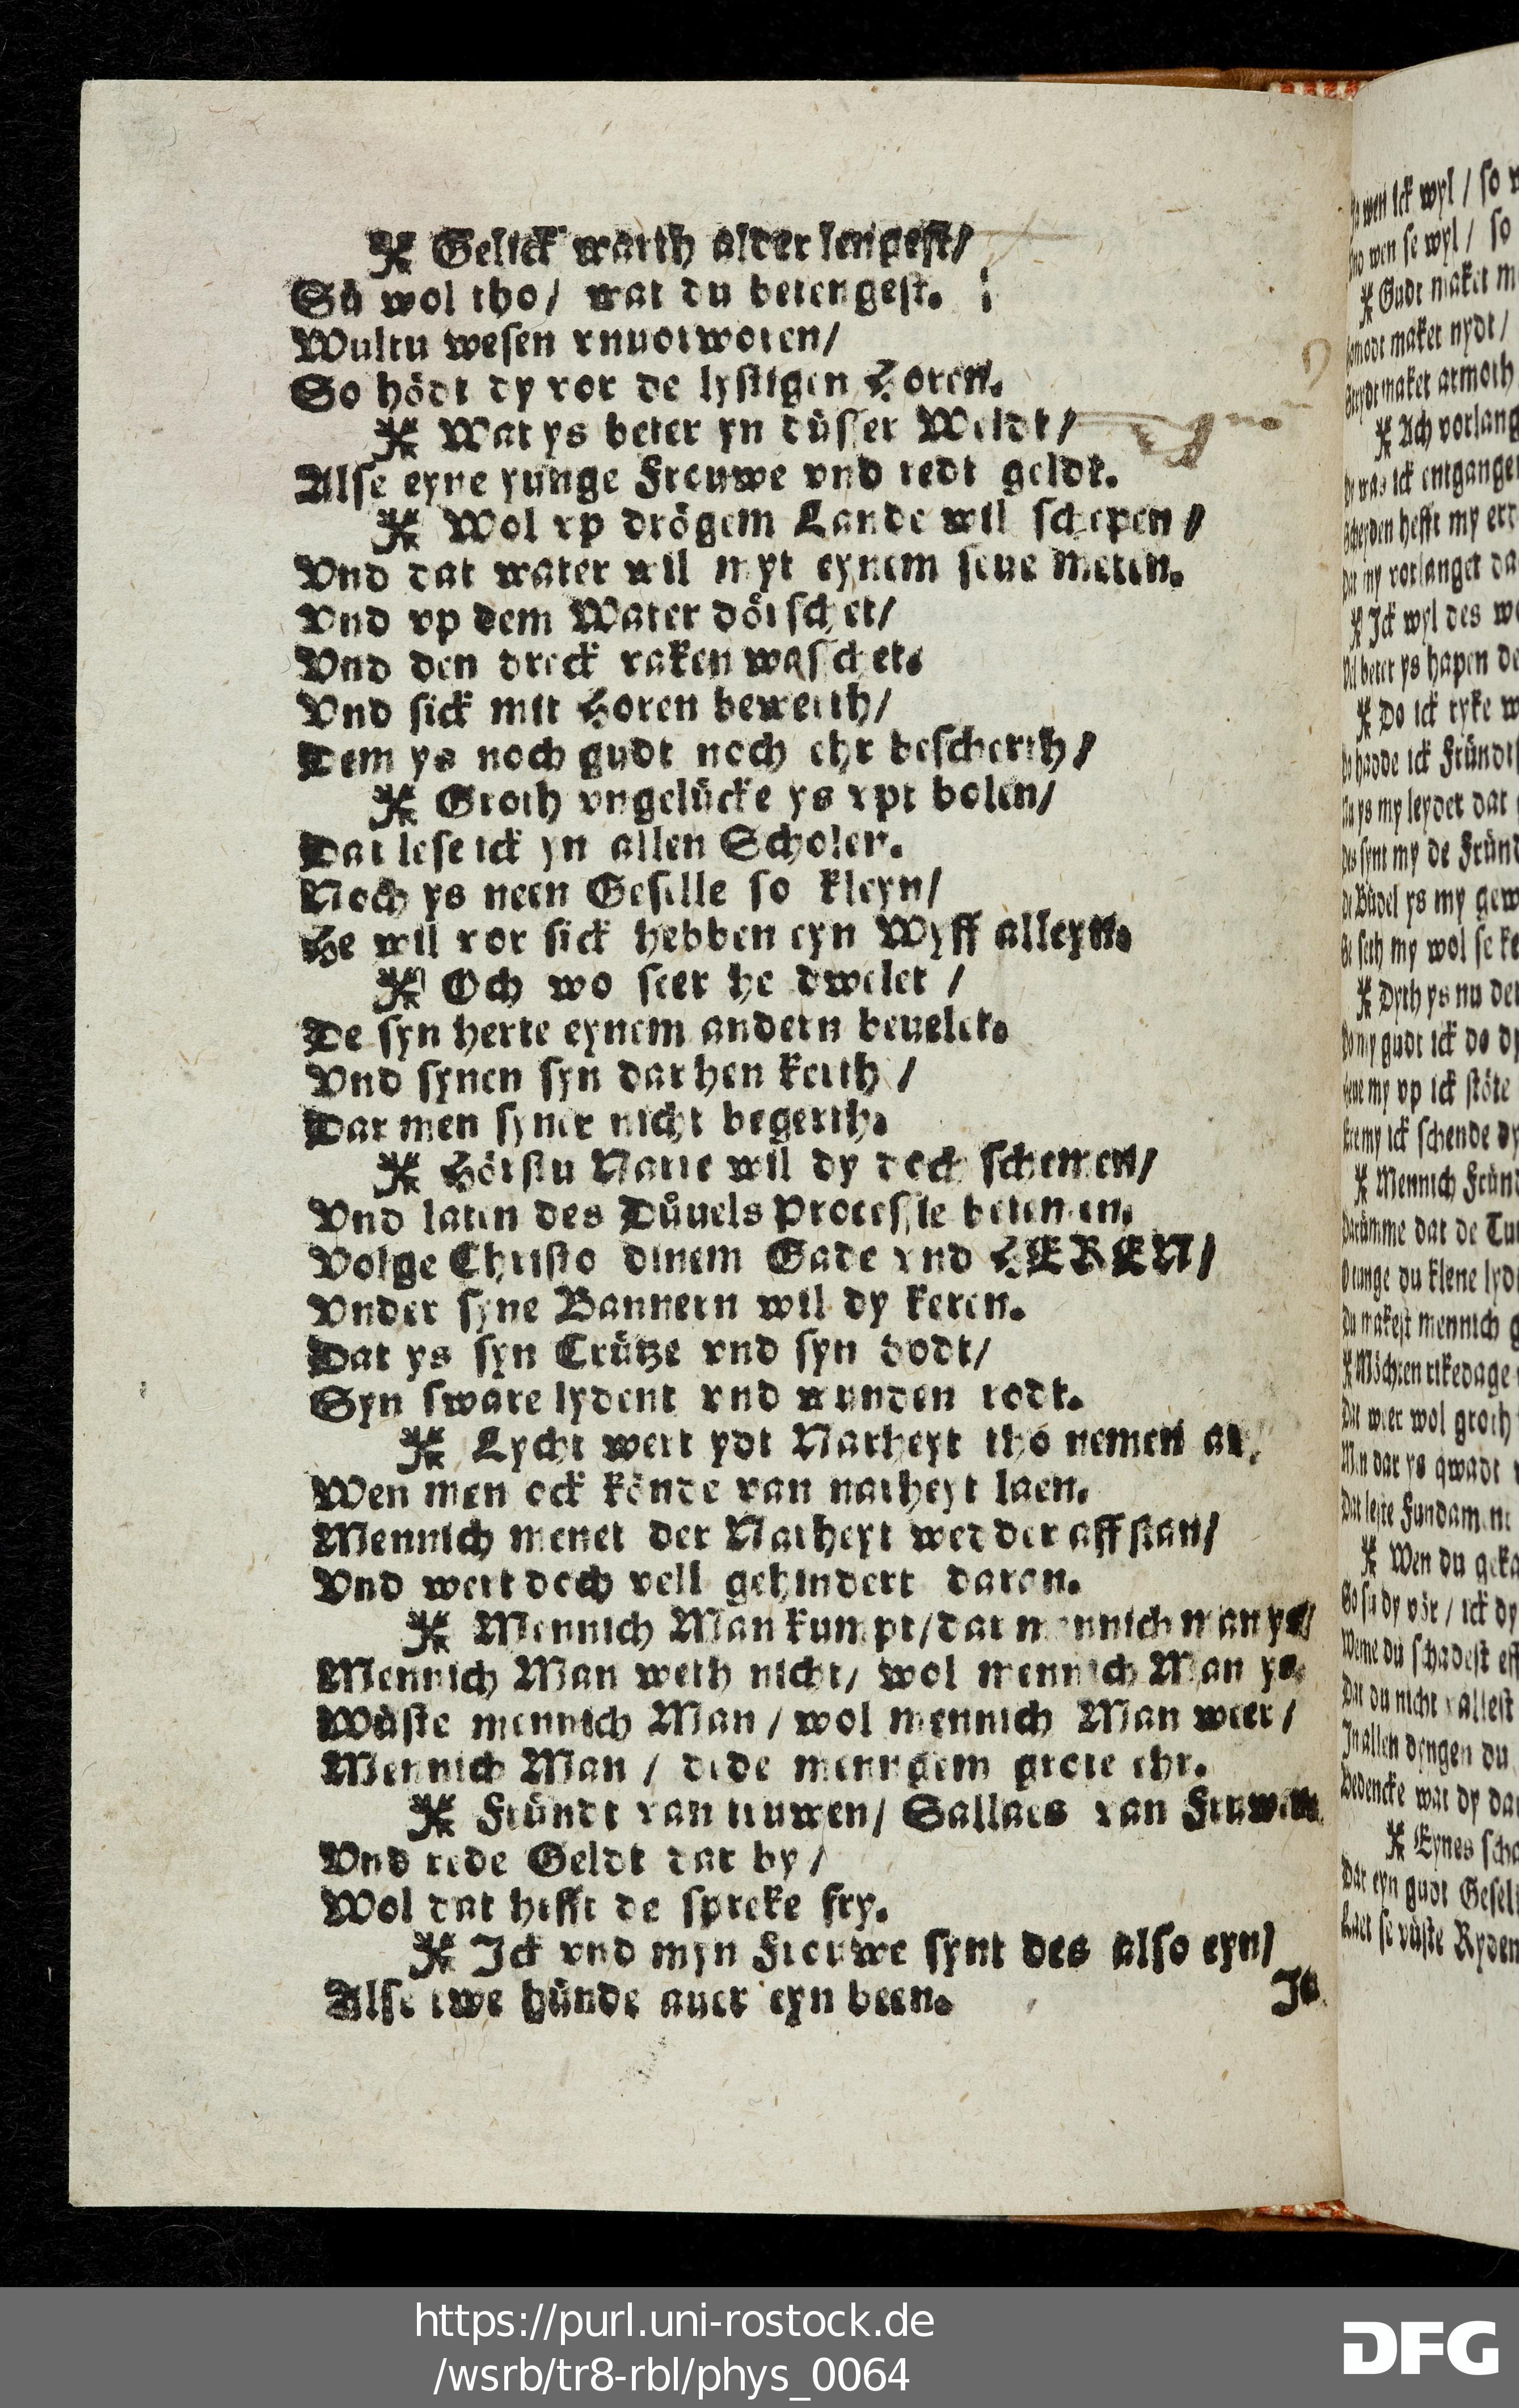 Gelick warth alder lengest/
Sü wol tho/ wat du betengest.
Wultu wesen vnuorworen/
So hödt dy vor de lystigen Horen.
Wat ys beter yn düsser Weldt/
Alse eyne yunge Frouwe vnd redt geldt.
Wol vp drögem Lande wil schepen/
Vnd dat water wil myt eynem seue meten.
Vnd vp dem Water dörschet/
Vnd den dreck vaken waschet.
Vnd sick mit Horen beweith/
Dem ys noch gudt noch ehr bescherth/
Groth vngelücke ys vpt bolen/
Dat lese ick yn allen Scholen.
Noch ys neen Geselle so kleyn/
He wil vor sick hebben eyn Wyff alleyn.
Och wo seer he dwelet /
De syn herte eynem andern beuelet.
Vnd synen syn darhen kerth /
Dar men syner nicht begerth.
Hörstu Narre wil dy doch schemen/
Vnd laten des Düuels Processie betemen.
Volge Christo dinem Gade vnd HEREN/
Vnder syne Bannern wil dy keren.
Dat ys syn Crütze vnd syn dodt/
Syn sware lydent vnd wunden rodt.
Lycht wert ydt Narheyt tho nemen an,
Wen men ock könde van narheyt laen.
Mennich menet der Narheyt wedder affstan/
Vnd wert doch vell gehindert daran.
Mennich Man kumpt/dar mennich man ys/
Mennich Man weth nicht/ wol mennich Man ys.
Wüste mennich Man / wol mennich Man weer /
Mennich Man / dede mennigem grote ehr.
Fründt van truwen/ Sallaes van Fruwen
Vnd rede Geldt dar by /
Wol dat hefft de spreke fry.
Ick vnd myn Frouwe synt des also eyn/
Alse twe hünde auer eyn been.
wen ick wyl / so
wen se wyl / so
Gudt maket
maket nydt /
maket armoth
Ach vorlang
was ick entgangen
hefft my
my vorlanget
Ick wyl des
beter ys hapen
Do ick ryke
hadde ick
ys my leyder dat
synt my de
Büdel ys my
seth my wol se
Dyth ys nu
my gudt ick do
my vp ick stöte
my ick schende
Mennich
Darümme dat de
tunge du klene
Du makest mennich
Möchten rikedage
Dat weer wol groth
Men dar ys qwadt
Dat leste
Wen du
So sü dy vör / ick dy
Weme du schadest
Dat du nicht vallest
In allen dyngen du
Bedencke wat dy
Eynes
Dat eyn gudt
Laet se rüste
https://purl.uni-rostock.de
/wsrb/tr8-rbl/phys_0064
DFG